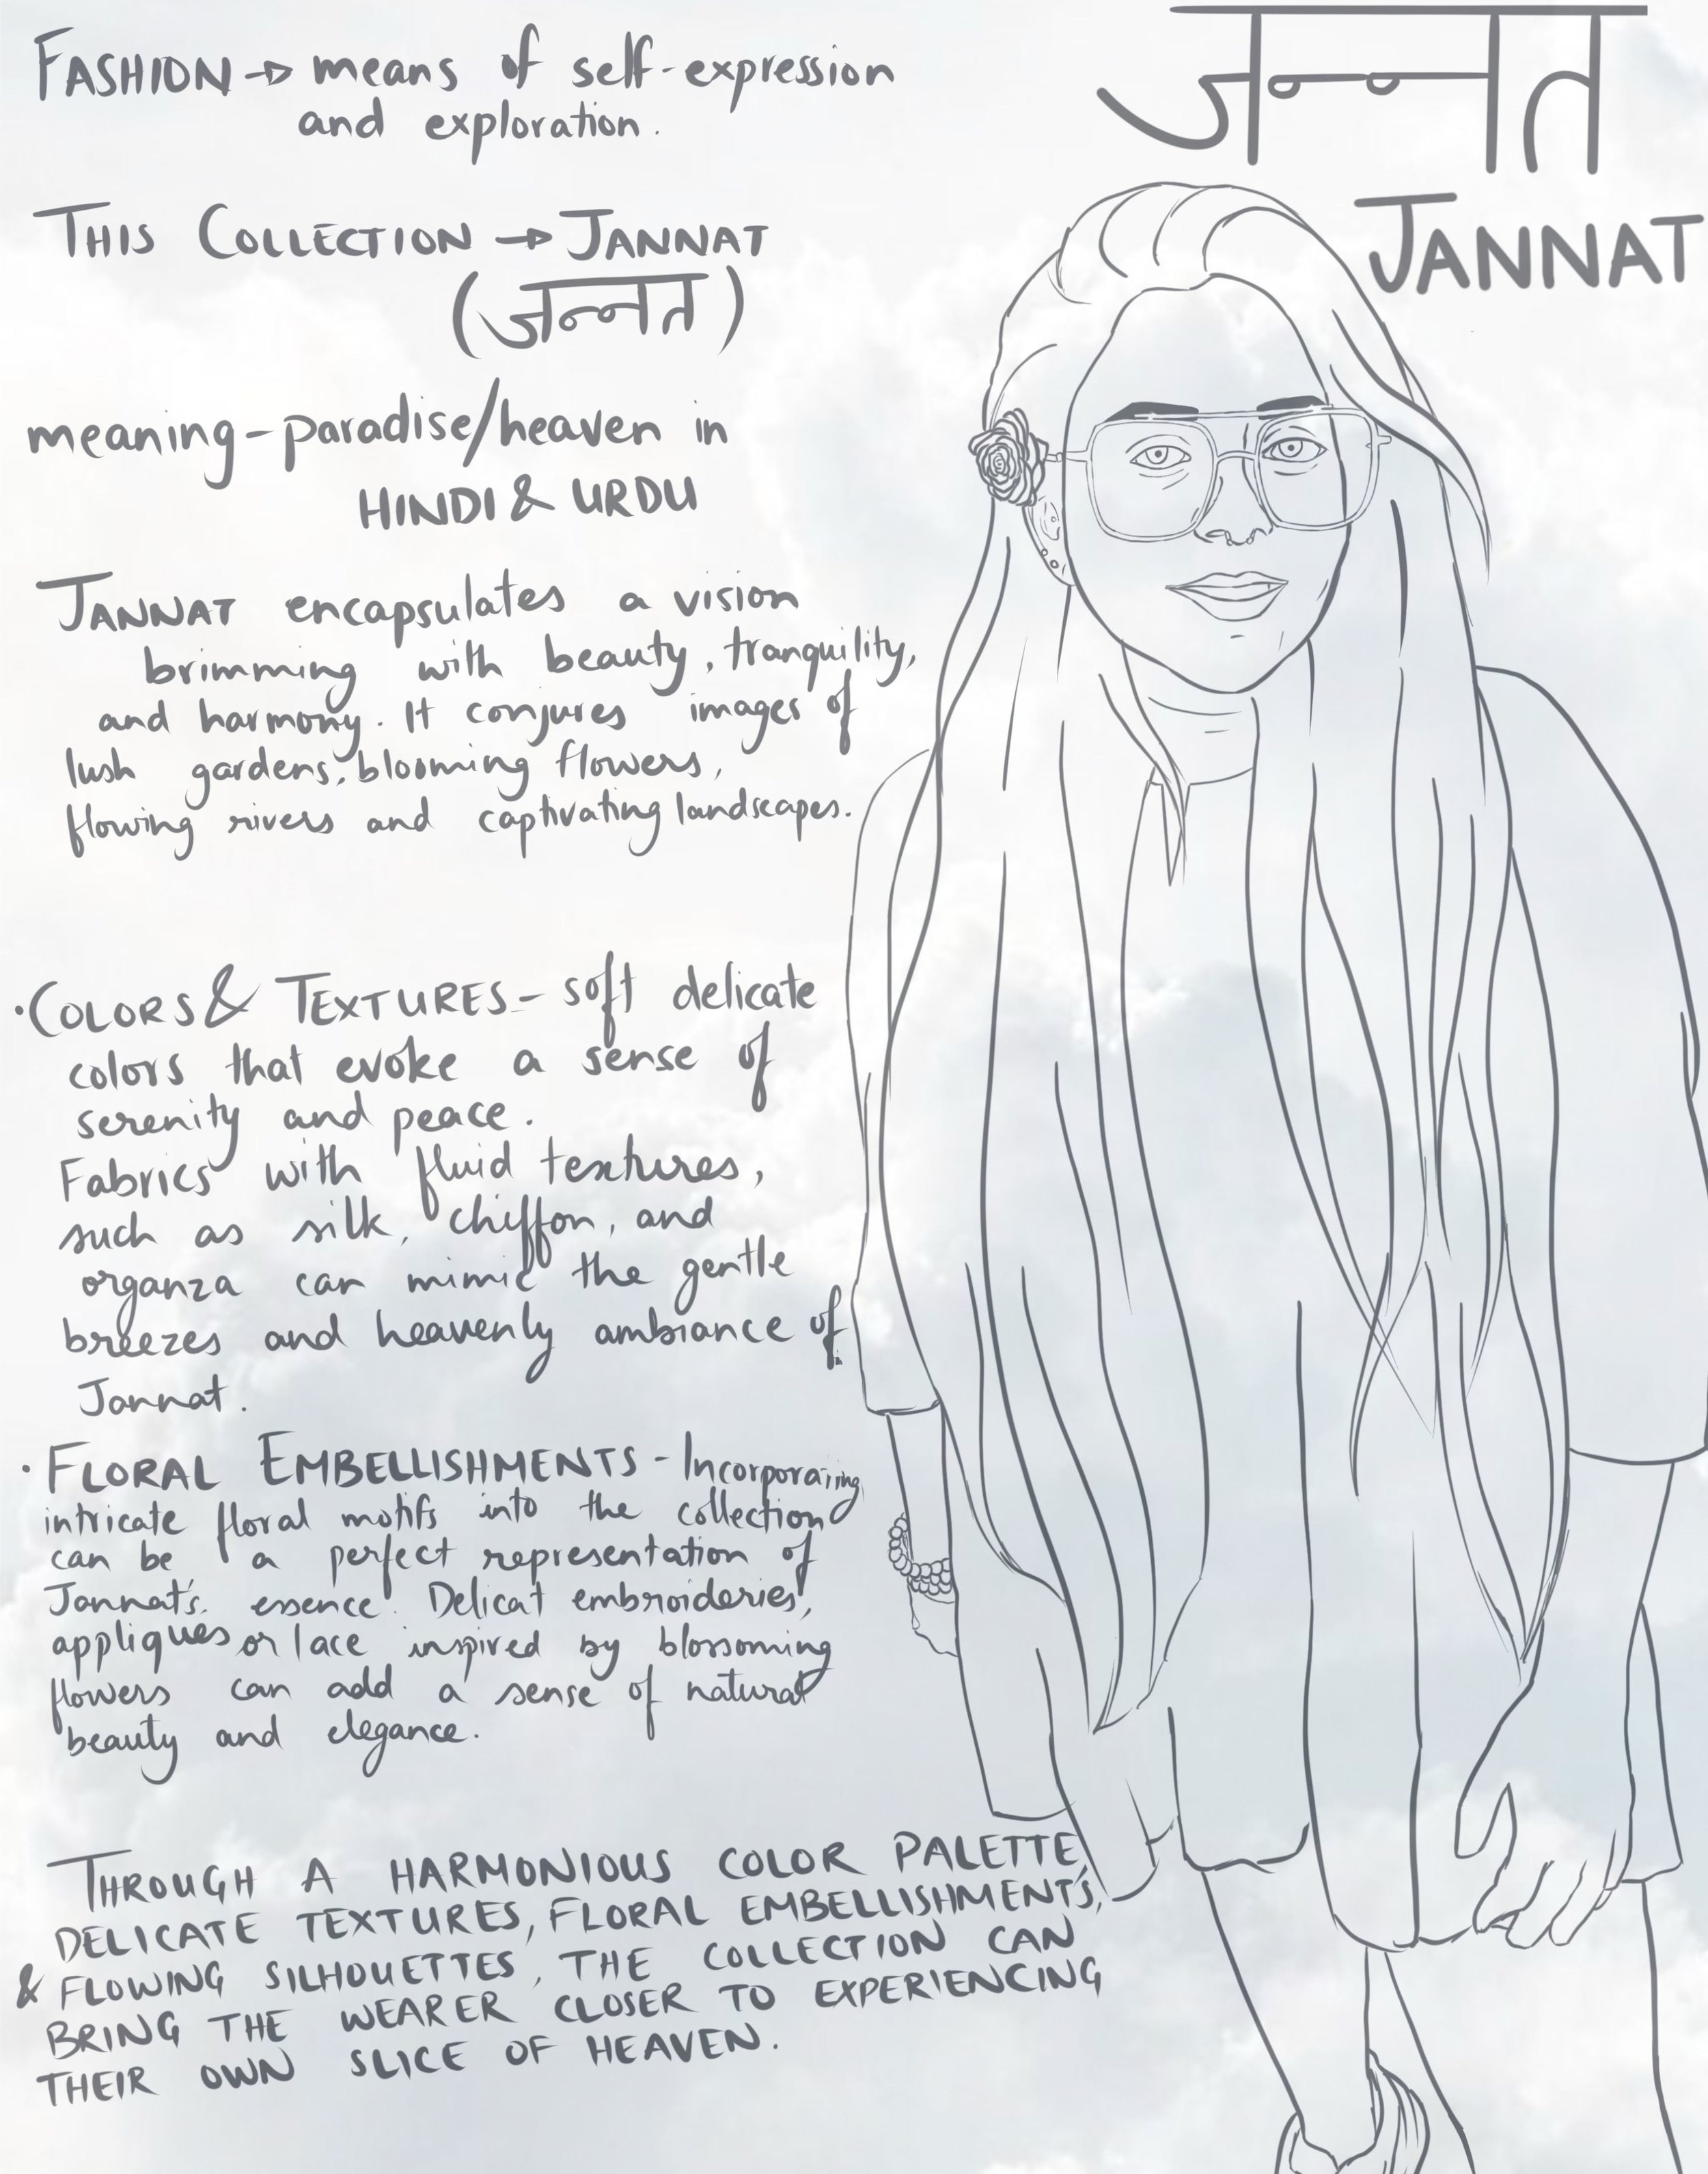 जन्नत
JANNAT
FASHION → means of self-expression
and exploration.
THIS COLLECTION → JANNAT
(जन्नत)
meaning - paradise/heaven in
HINDI & URDU
JANNAT encapsulates a vision
brimming with beauty, tranquility,
and harmony. It conjures images of
lush gardens, blooming flowers,
flowing rivers and captivating landscapes.
• COLORS & TEXTURES - soft delicate
colors that evoke a sense of
serenity and peace.
Fabrics with fluid textures,
such as silk, chiffon, and
organza can mimic the gentle
breezes and heavenly ambiance of
Jannat.
• FLORAL EMBELLISHMENTS - Incorporating
intricate floral motifs into the collection
can be a perfect representation of
Jannat's essence. Delicat embroideries,
appliques or lace inspired by blossoming
flowers can add a sense of natural
beauty and elegance.
THROUGH A HARMONIOUS COLOR PALETTE,
DELICATE TEXTURES, FLORAL EMBELLISHMENTS,
& FLOWING SILHOUETTES, THE COLLECTION CAN
BRING THE WEARER CLOSER TO EXPERIENCING
THEIR OWN SLICE OF HEAVEN.